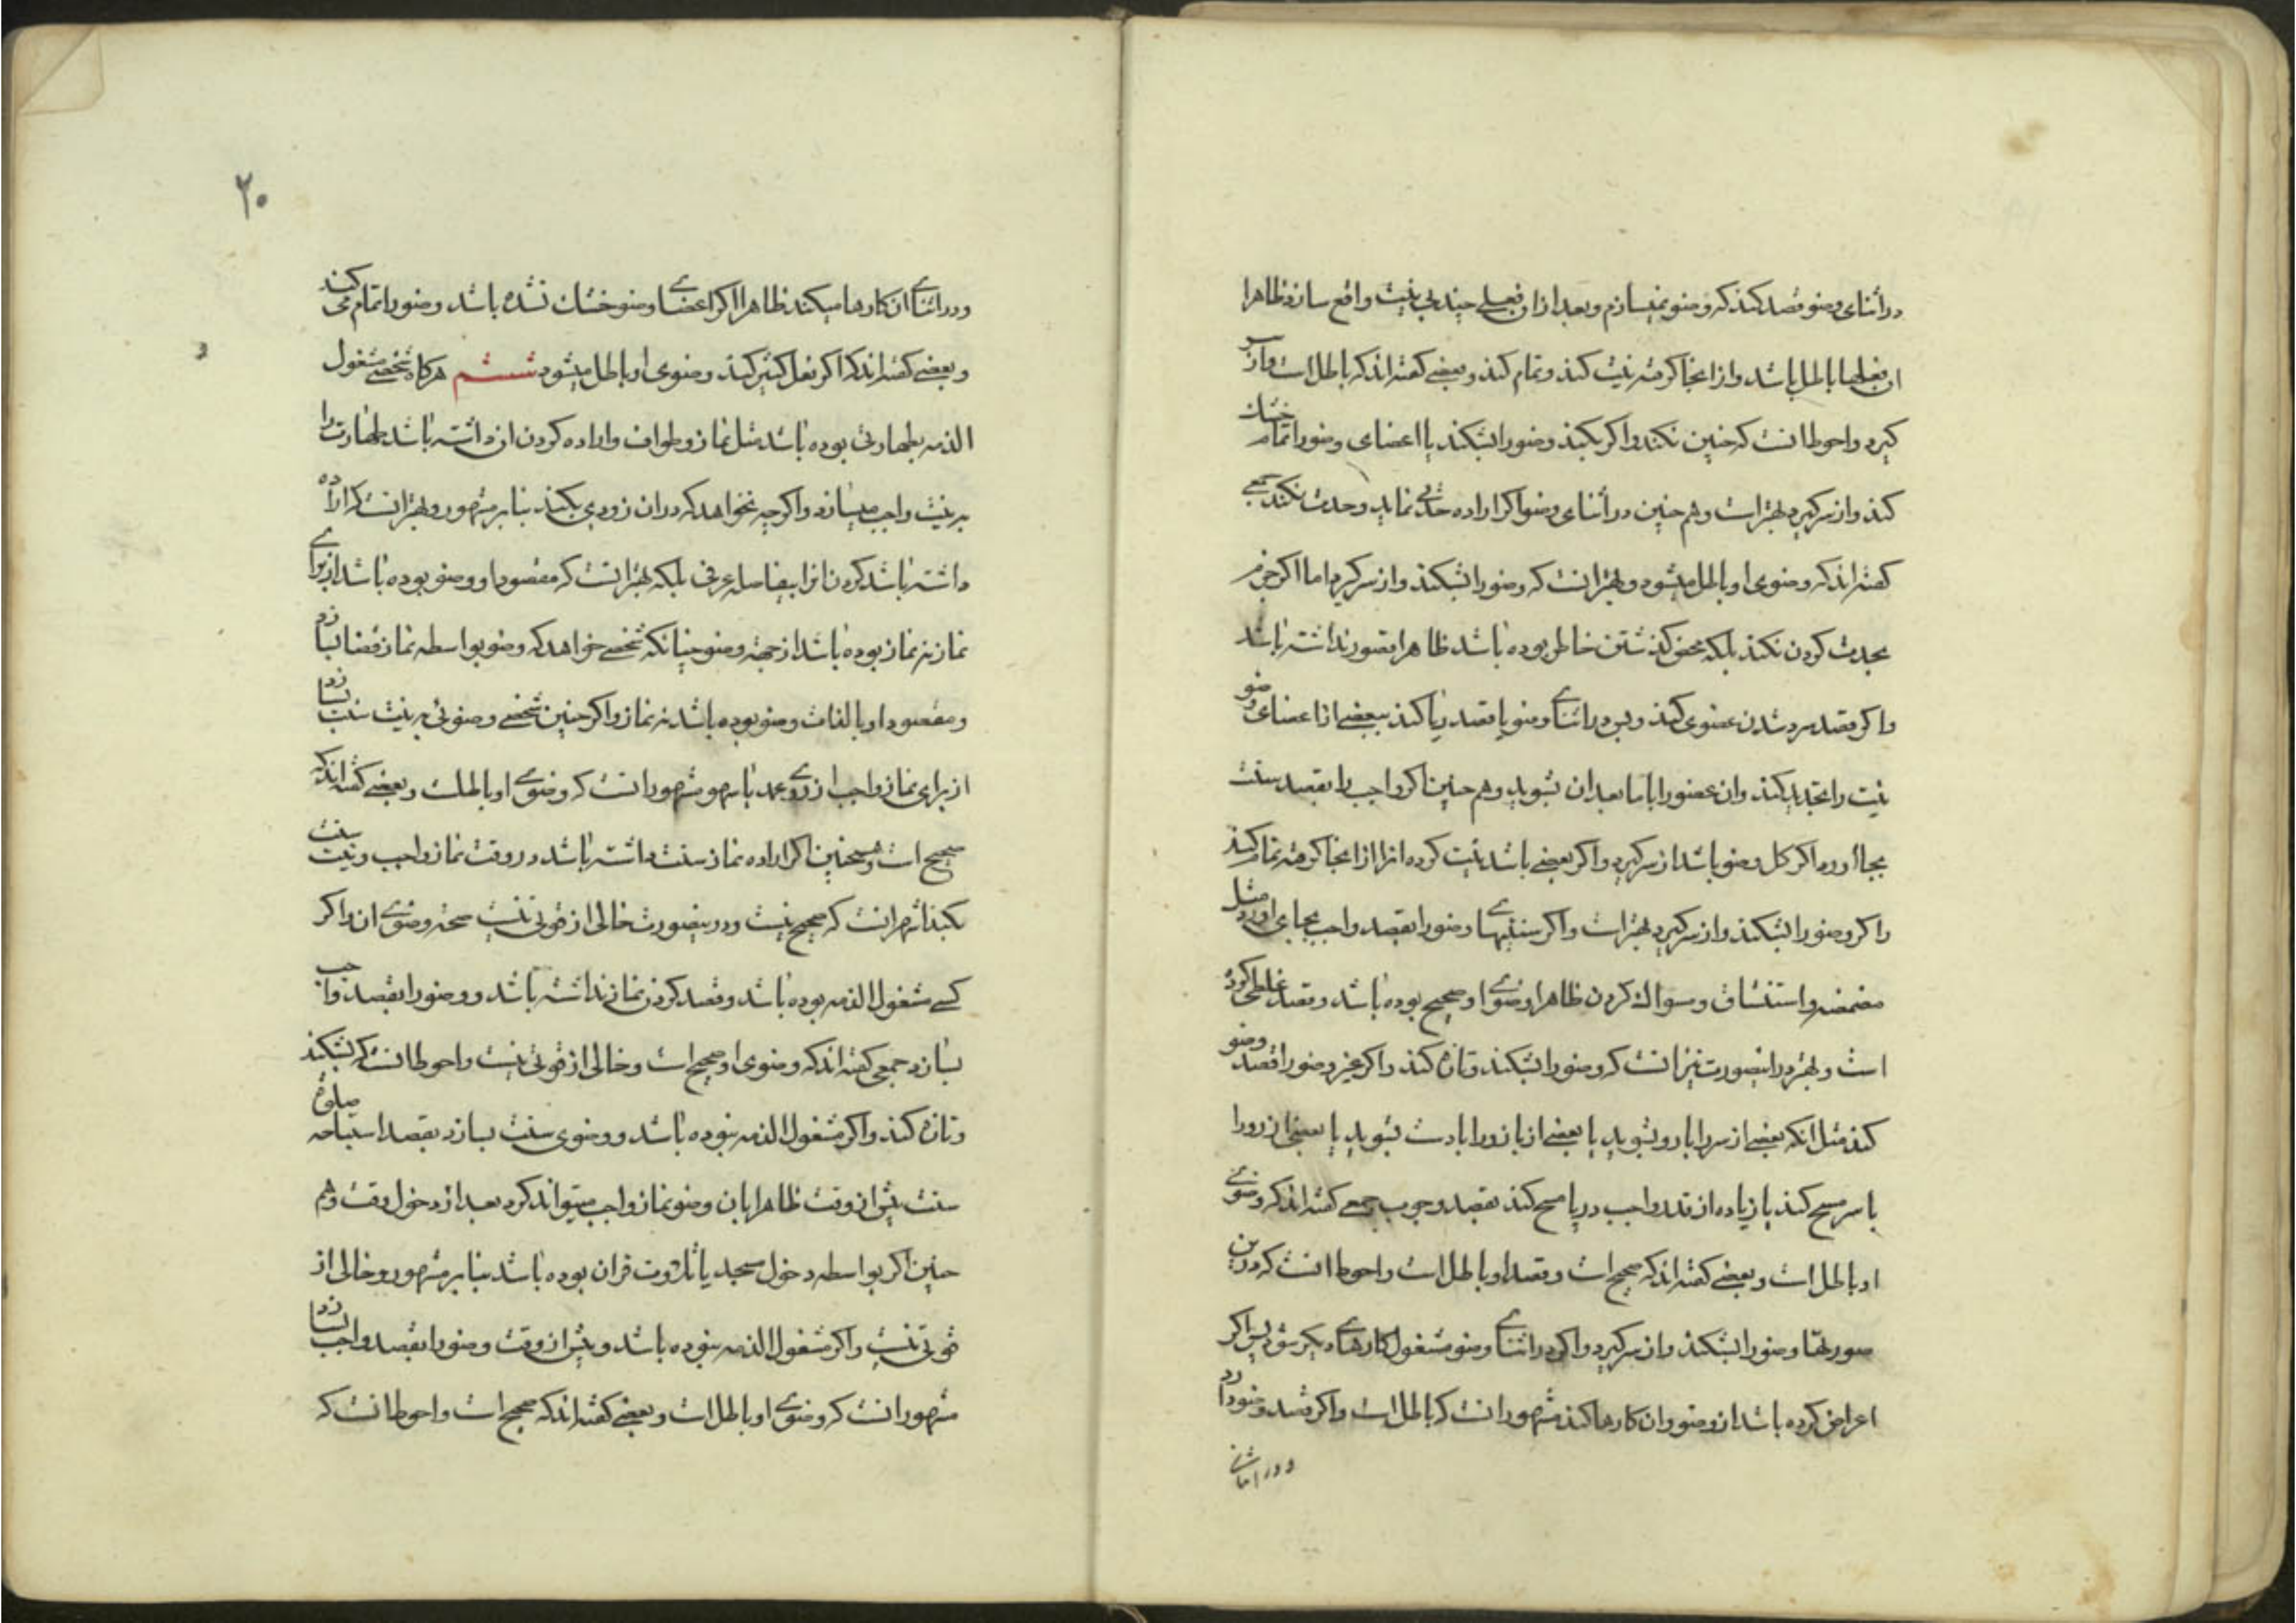 در اثنای وضو قصد کند که وضو نمیسازم و بعد از ان فعلی چند بی نیت واقع سازد ظاهرا
ان فعلها باطل باشد و از انجا که مرتبه نیت کند و تمام کند و بعضی کفته اند که باطل است و از سر
کیرد و احوط انست که چنین نکند و اکر بکند وضو را بشکند یا اعضای وضو را تمام خشک
کند و از سر کیرد بهتر است و هم چنین در اثنای وضو اکر اراده حدثی نماید و حدث نکند جمعی
کفته اند که وضوی او باطل میشود و بهتر انست که وضو را بشکند و از سر کیرد اما اکر جزم
بحدث کردن نکند بلکه محض کذشتن خاطر بوده باشد ظاهرا قصور نداشته باشد
و اکر قصد سرد شدن عضوی کند و بس در اثنای وضو یا قصد ریا کند ببعضی از اعضای وضو
نیت را تجدید کند و ان عضو را با ما بعد ان بشوید و هم چنین اکر واجب را بقصد سنت
بجا اورد اکر کل وضو باشد از سر کیرد و اکر بعضی باشد نیت کرده انرا از انجا که مرتبه تمام کند
و اکر وضو را بشکند و از سر کیرد بهتر است و اکر سنتیهای وضو را بقصد واجب بجای اورد مثل
مضمضه و استنشاق و سواک کردن ظاهرا وضوی او صحیح بوده باشد و قصد غلطی کرده
است و بهتر در اینصورت نیز انست که وضو را بشکند و تازه کند و اکر غیر وضو را قصد وضو
کند مثل انکه بعضی از سر را با رو بشوید یا بعضی از بازو را با دست بشوید یا بعضی از رو را
با سر مسح کند یا زیاده از قدر واجب در پا مسح کند بقصد وجوب جمعی کفته اند که وضوی
او باطل است و بعضی کفته اند که صحیح است و قصد او باطل است و احوط انست که درین
صورتها وضو را بشکند و از سر کیرد و اکر در اثنای وضو مشغول کارهای دیکر شود پس اکر
اعراض کرده باشد از وضو و ان کارها کند مشهور انست که باطل است و اکر قصد وضو دارد
و در اثنای
۲۰
و در اثنای ان کارها میکند ظاهرا اکر اعضای وضو خشک نشده باشد وضو را تمام می کند
و بعضی کفته اند که اکر فعل کثیر کند وضوی او باطل میشود ششم هرکاه شخصی مشغول
الذمه بطهارتی بوده باشد مثل نماز و طواف و اراده کردن ان داشته باشد طهارت را
به نیت واجب میسازد و اکر چه نخواهد که در ان زودی بکند بنا بر مشهور و بهتر انست که اراده
داشته باشد کردن انرا بیفاصله عرفی بلکه بهتر انست که مقصود او وضو بوده باشد از برای
نماز نه نماز بوده باشد از جهة وضو چنانکه شخصی خواهد که وضو بواسطه نماز قضا بسازد
و مقصود او بالذات وضو بوده باشد نه نماز و اکر چنین شخصی وضوئی به نیت سنت بسازد
از برای نماز واجب از روی عمد یا سهو مشهور انست که وضوی او باطلست و بعضی کفته اند که
صحیح است و همچنین اکر اراده نماز سنت داشته باشد در وقت نماز واجب و نیت سنت
بکند اشهر انست که صحیح نیست و در اینصورت خالی از قوتی نیست صحة وضوی ان و اکر
کسی مشغول الذمه بوده باشد و قصد کردن نماز نداشته باشد و وضو را بقصد واجب
بسازد جمعی کفته اند که وضوی او صحیح است و خالی از قوتی نیست و احوط انست که بشکند
و تازه کند و اکر مشغول الذمه نبوده باشد و وضوی سنت بسازد بقصد استباحه صلوة
سنت پیش از وقت ظاهرا بان وضو نماز واجب میتواند کرد بعد از دخول وقت و هم
چنین اکر بواسطه دخول مسجد یا تلاوت قران بوده باشد بنا بر مشهور و خالی از
قوتی نیست و اکر مشغول الذمه نبوده باشد و پیش از وقت وضو را بقصد واجب بسازد
مشهور انست که وضوی او باطل است و بعضی کفته اند که صحیح است و احوط انست که